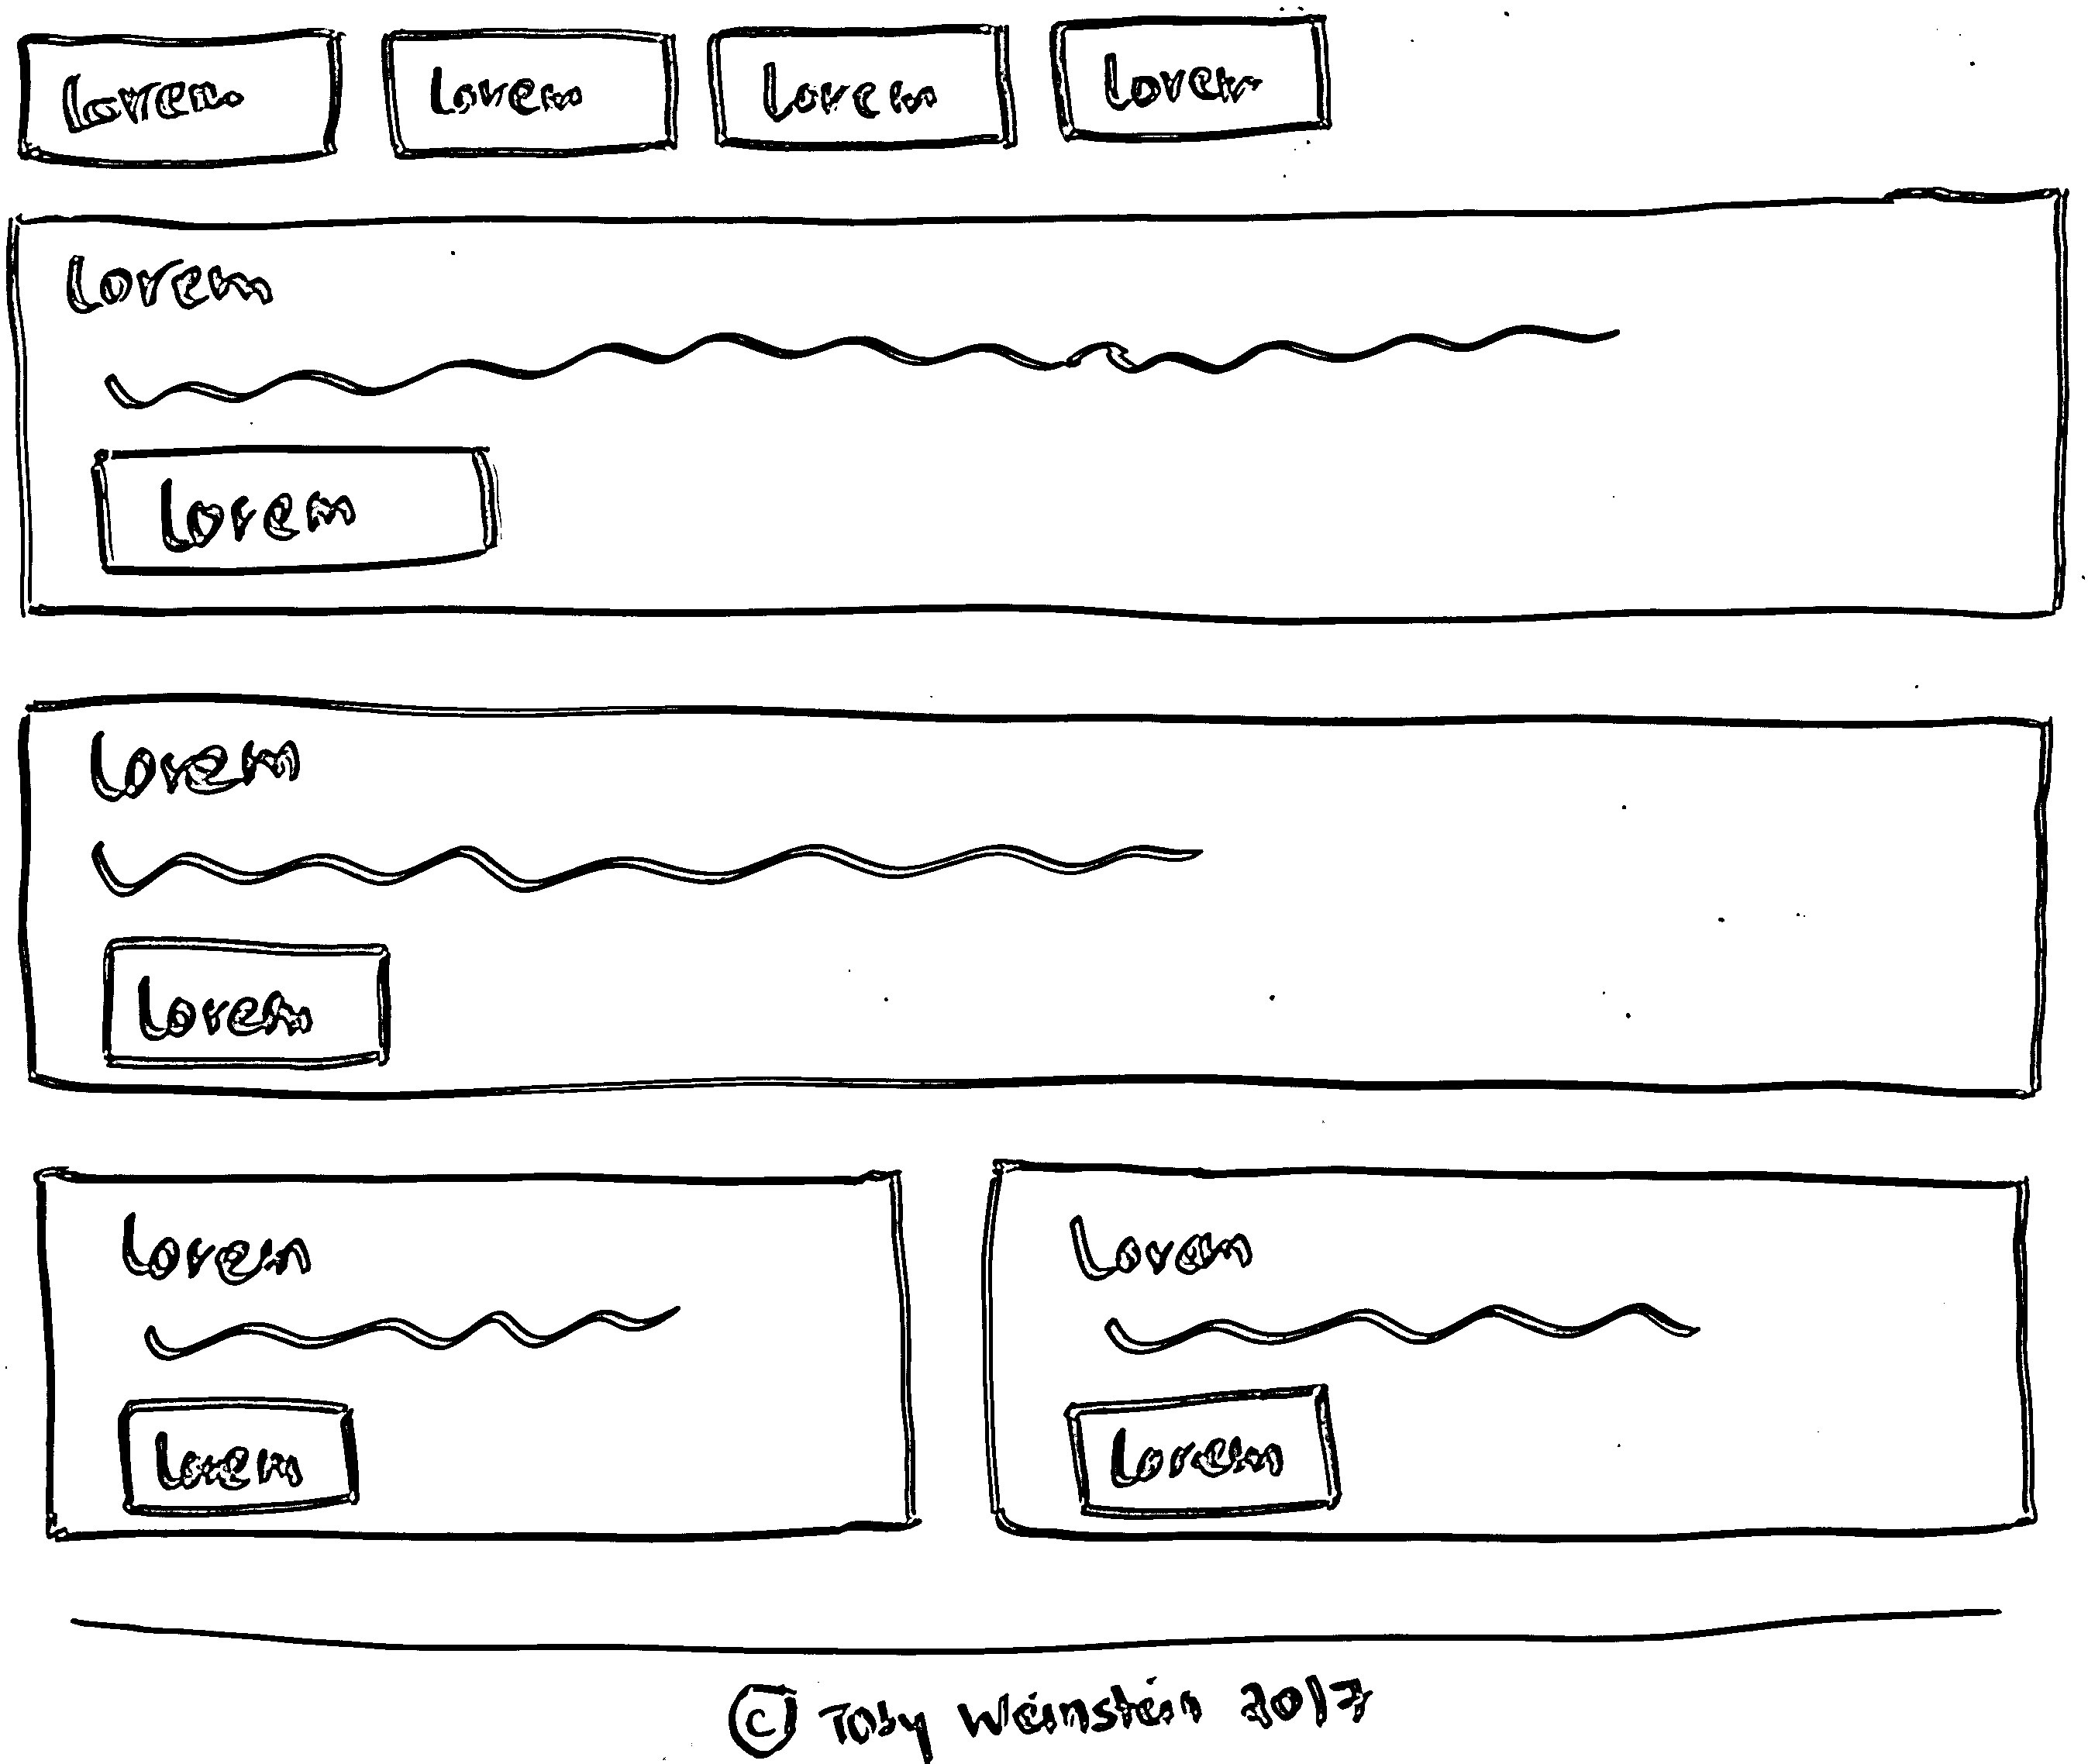 Lorem Lorem Lorem Lorem
Lorem
Lorem
Lorem
Lorem
Lorem
Lorem
Lorem
Lorem
© Toby Weinstein 2017